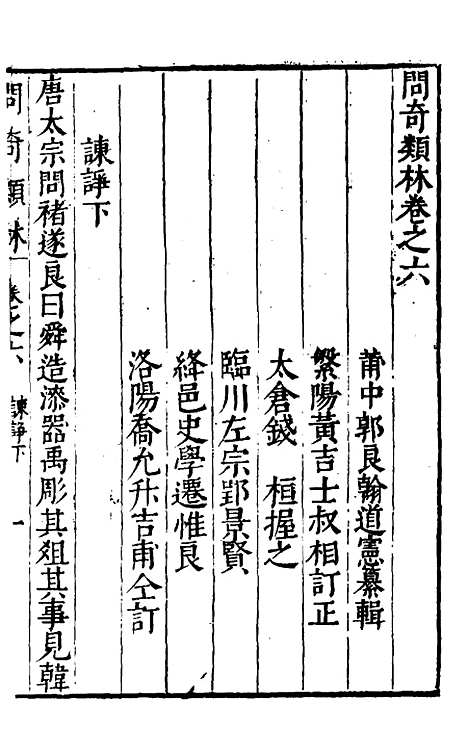 問奇類林卷之六
莆中郭良翰道憲纂輯
縏陽黃吉士叔相訂正
太倉錢 桓握之
臨川左宗郢景賢
絳邑史學遷惟良
洛陽喬允升吉甫仝訂
諫諍下
唐太宗問褚遂良曰舜造漆器禹彫其俎其事見韓
問奇類林 卷之六 諫諍下 一